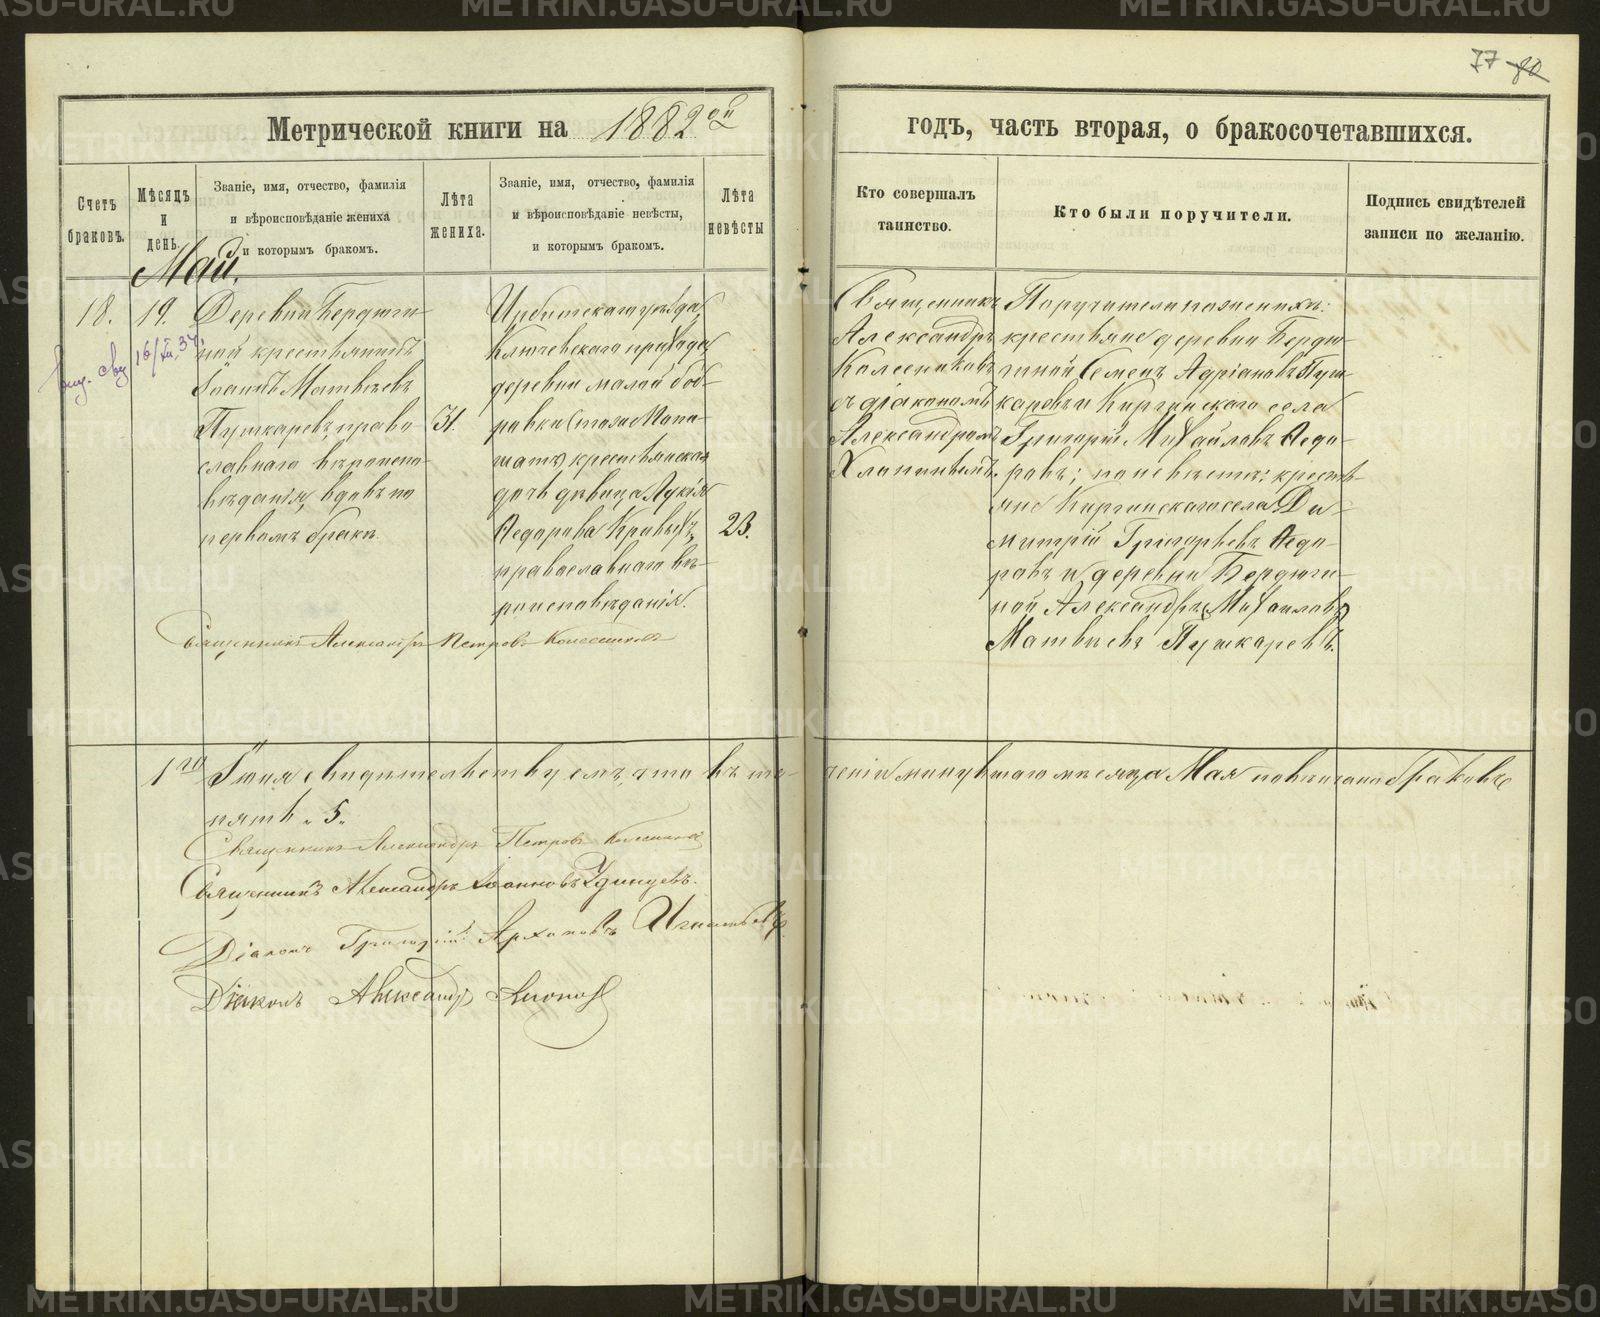 77 80
Метрической книги на 1882ой
годъ, часть вторая, о бракосочетавшихся.
Счетъ браковъ.
Мѣсяцъ и день.
Званіе, имя, отчество, фамилія
и вѣроисповѣданіе жениха
и которымъ бракомъ.
Лѣта жениха.
Званіе, имя, отчество, фамилія
и вѣроисповѣданіе невѣсты,
и которымъ бракомъ.
Лѣта невѣсты
Кто совершалъ
таинство.
Кто были поручители.
Подпись свидѣтелей
записи по желанію.
Май.
18.
19.
16/XII 37.
Выд. св
Деревни Бердюги-
ной крестьянинъ
Іоаннъ Матвѣевъ
Пушкаревъ, право
славнаго вѣроиспо-
вѣданія, вдовъ по
первомъ бракѣ
31.
Ирбитскаго уѣзда,
Ключевскаго прихода,
деревни малой боб-
ровки (
крестьянская
дочь дѣвица
Ѳедорова
православнаго вѣ-
роисповѣданія.
23.
Священникъ
Александръ
Колесниковъ
съ діакономъ
Александромъ
Поручители по женихѣ:
крестьяне деревни Бердю-
гиной Семенъ Адріановъ Пуш-
каревъ и Киргинскаго села
Григорій Михайловъ Ѳедо-
ровъ; по невѣстѣ: кресть-
яне Киргинскаго села Ди-
митрій Григорьевъ Ѳедо-
ровъ и деревни Бердюги-
ной Александръ Михаиловъ
Матвѣевъ Пушкаревъ.
Священникъ Александръ Петровъ Колесниковъ
1го Іюня свидѣтельствуемъ, что въ те-
ченіи минувшаго мѣсяца Мая повѣнчано браковъ
пять „5„
Священникъ Александръ Петровъ Колесниковъ
Священникъ Александръ Іоанновъ Удинцевъ.
Діаконъ Григорій Игнатьевъ
Діаконъ Александръ
METRIKI.GASO-URAL.RU